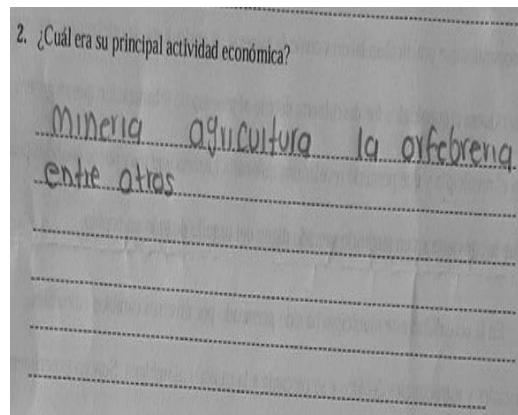 2. ¿Cuál era su principal actividad económica?
mineria agricultura la orfebreria
entre otras